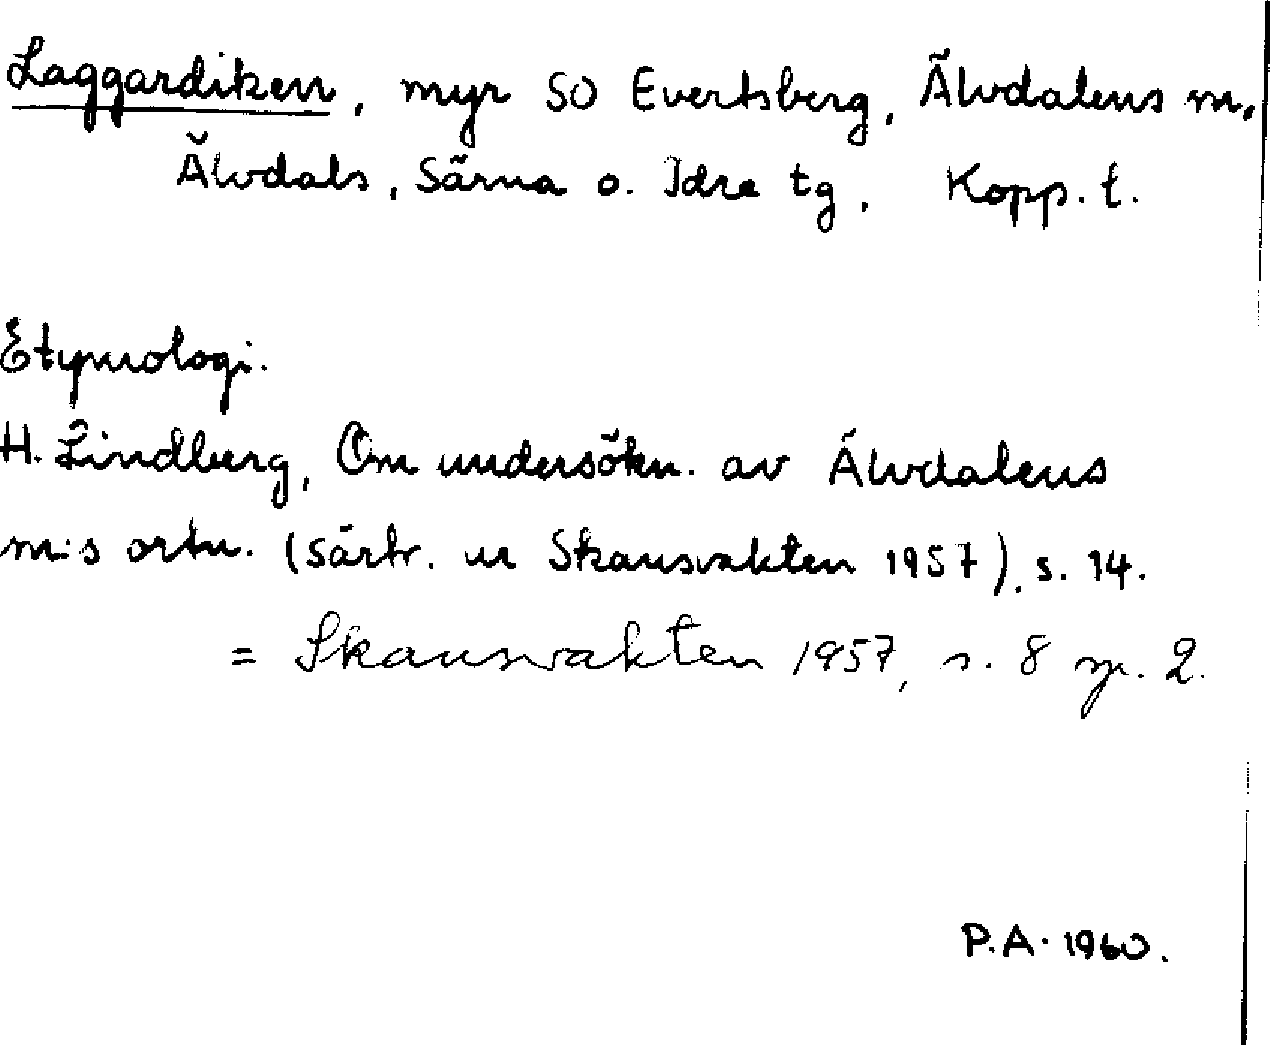 Laggardiken, myr SO Evertsberg, Älvdalens sn,
Älvdals, Särna o. Idre tg, Kopp. l.
Etymologi.
H. Lindberg, Om undersökn. av Älvdalens
sn:s ortn. (särtr. ur Skansvakten 1957), s. 14.
= Skansvakten 1957, s. 8 sp. 2.
P.A. 1960.